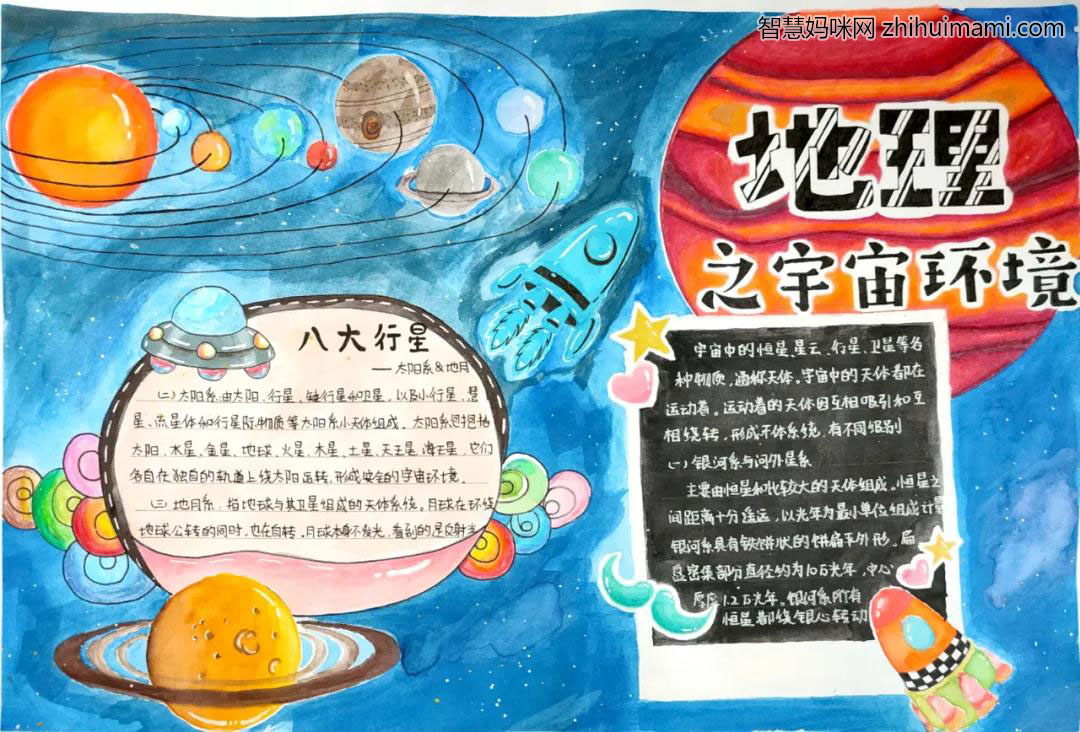 智慧妈咪网 zhihuimami.com
地理
之宇宙环境
八大行星
——太阳系&地月
(二)太阳系:由太阳、行星、矮行星和卫星,以及小行星、彗
星、流星体和行星际物质等太阳系小天体组成。太阳系包括
太阳、水星、金星、地球、火星、木星、土星、天王星、海王星,它们
各自在独自的轨道上绕太阳运转,形成安全的宇宙环境.
(三)地月系:指地球与其卫星组成的天体系统。月球在环绕
地球公转的同时,也在自转。月球本身不发光,看到的是反射光
宇宙中的恒星、星云、行星、卫星等各
种物质,通称天体。宇宙中的天体都在
运动着。运动着的天体因互相吸引和互
相绕转,形成天体系统,有不同级别
(一)银河系与河外星系
主要由恒星和比较大的天体组成。恒星之
间距离十分遥远,以光年为最小单位组成计量
银河系具有铁饼状的饼扁平外形。扁
盘密集部分直径约为10万光年,中心
厚度1.2万光年。银河系所有
恒星都绕银心转动